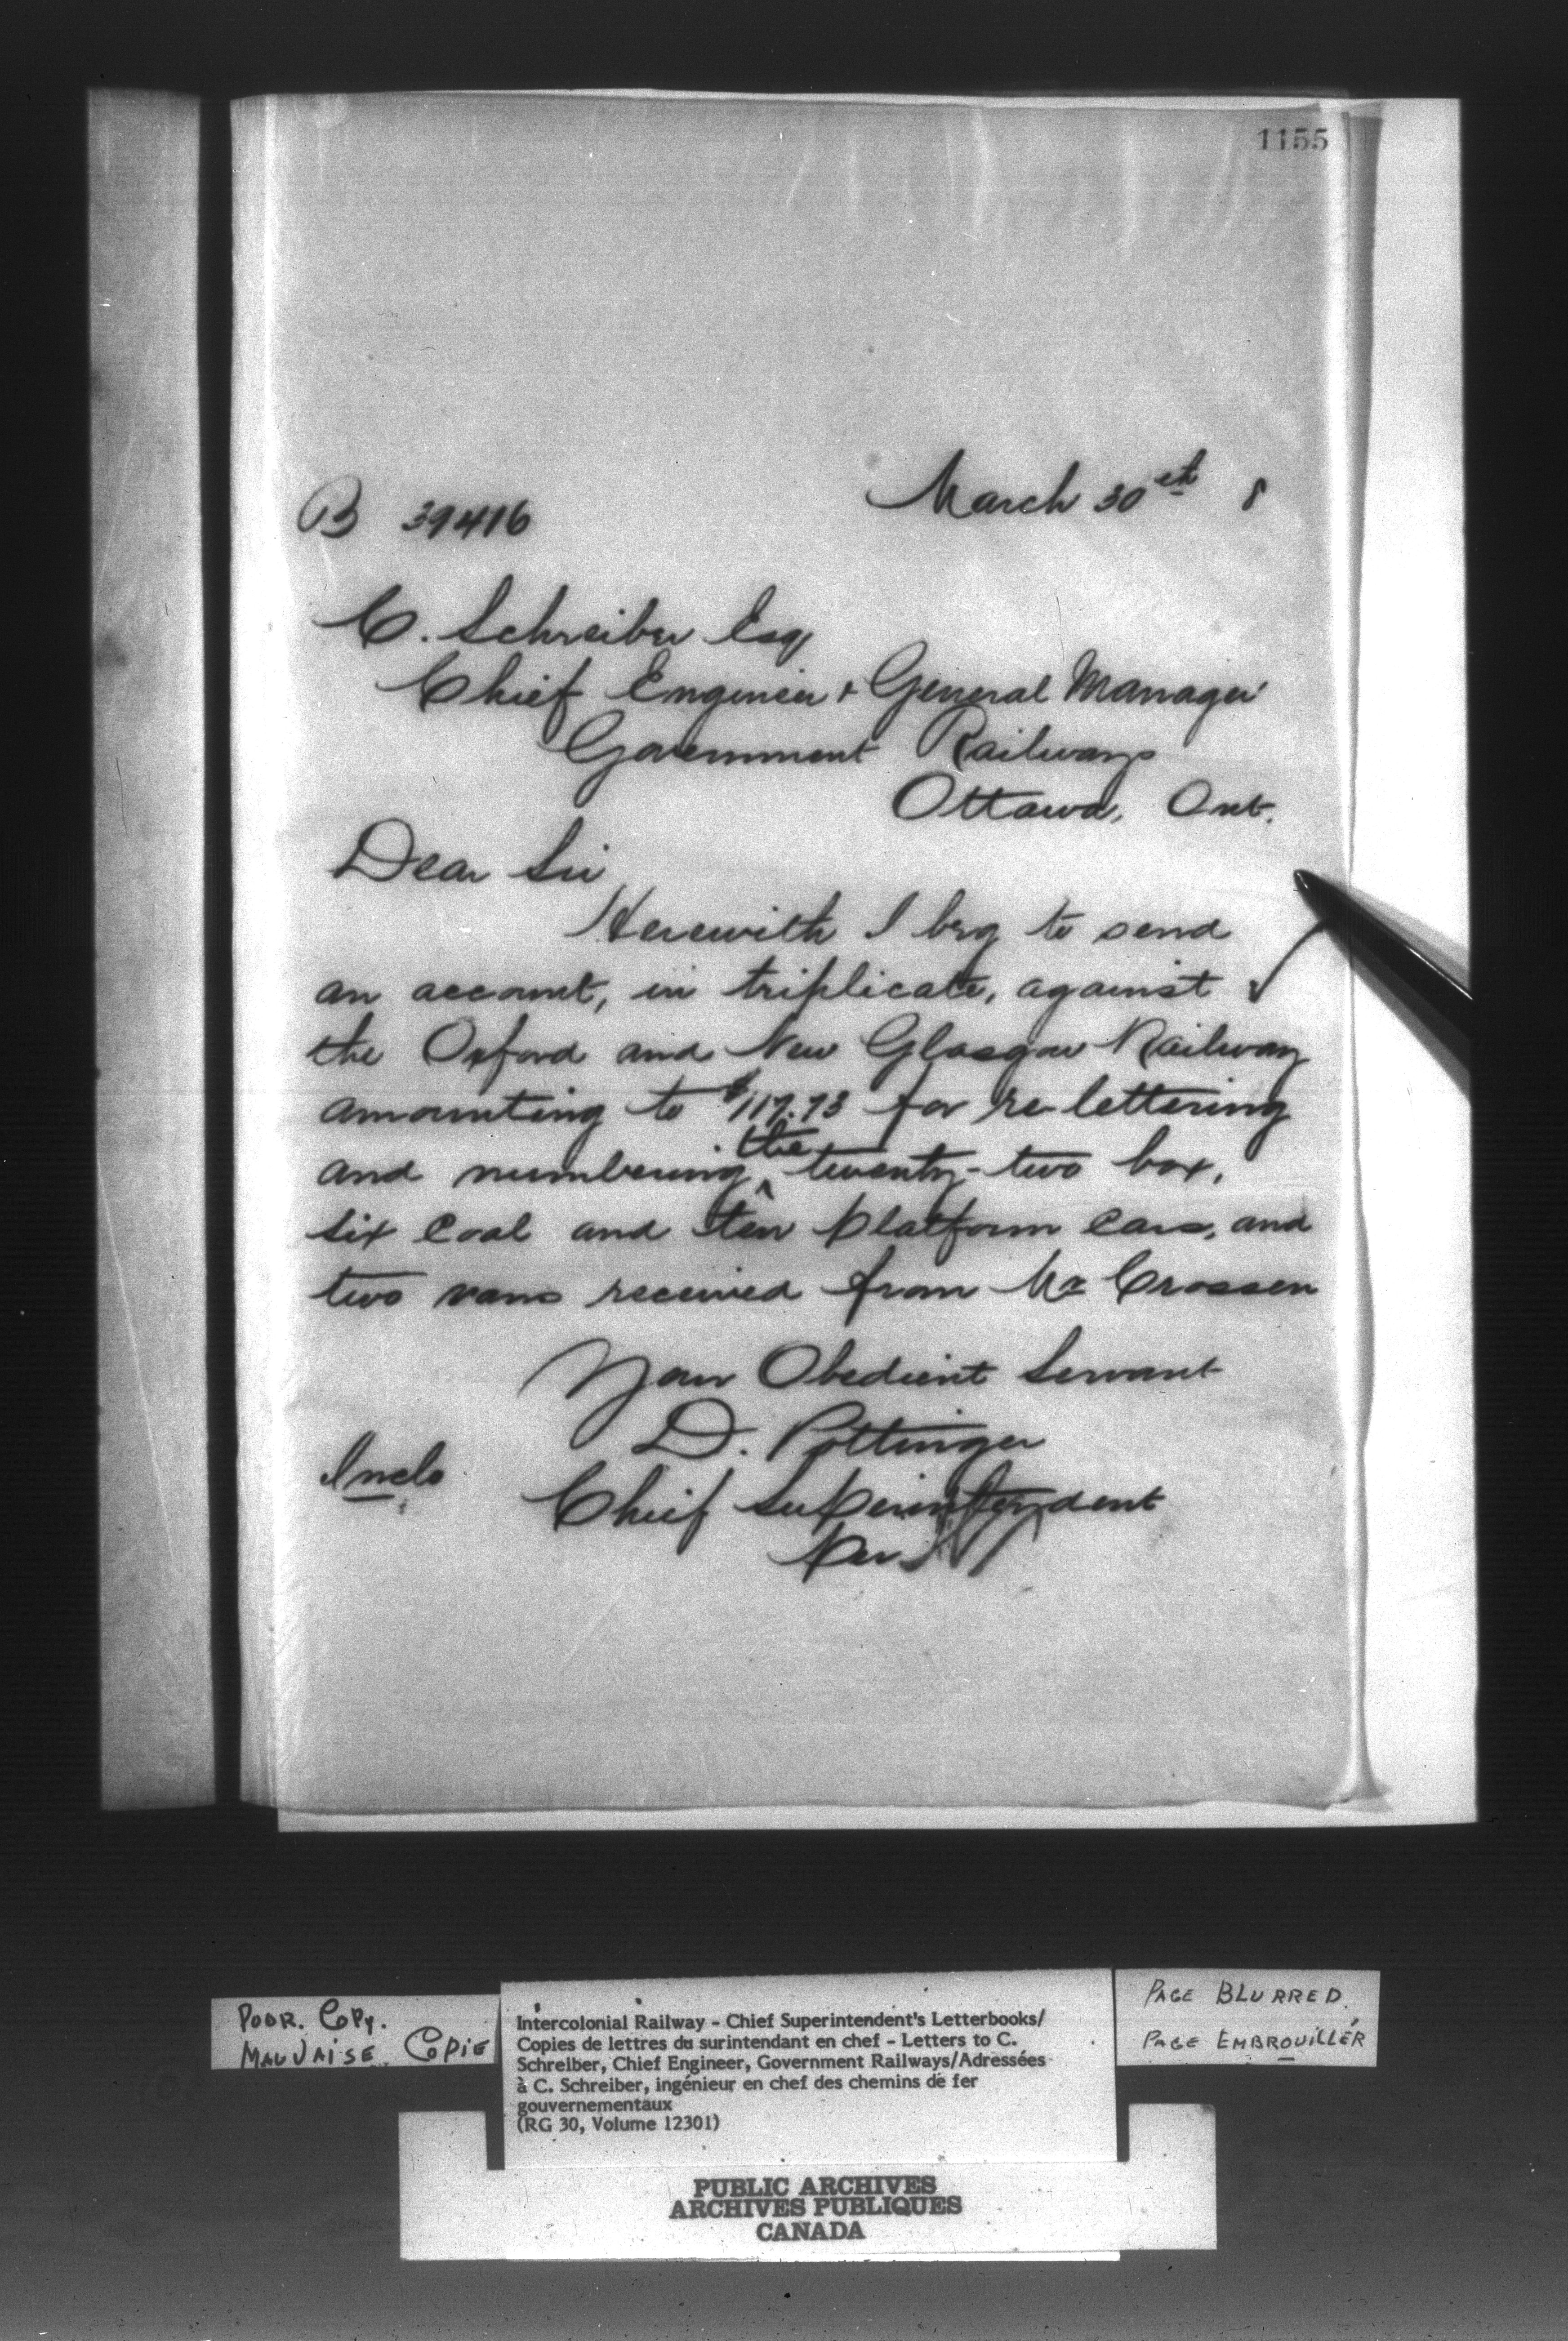 1155
March 30th 8
B 39416
C. Schreiber Esq
Chief Engineer & General Manager
Government Railways
Ottawa, Ont.
Dear Sir
Herewith I beg to send
an account, in triplicate, against
the Oxford and New Glasgow Railway
amounting to $117.73 for re-lettering
and numbering the twenty-two box,
six coal and ten platform cars, and
two vans received from Mr Crossen
Your Obedient Servant
D. Pottinger
Inclo
Chief Superintendent
Per
POOR. COPY.
MAUVAISE COPIE
Intercolonial Railway - Chief Superintendent's Letterbooks/
Copies de lettres du surintendant en chef - Letters to C.
Schreiber, Chief Engineer, Government Railways/Adressées
à C. Schreiber, ingénieur en chef des chemins de fer
gouvernementaux
(RG 30, Volume 12301)
PAGE BLURRED.
PAGE EMBROUILLÉR
PUBLIC ARCHIVES
ARCHIVES PUBLIQUES
CANADA